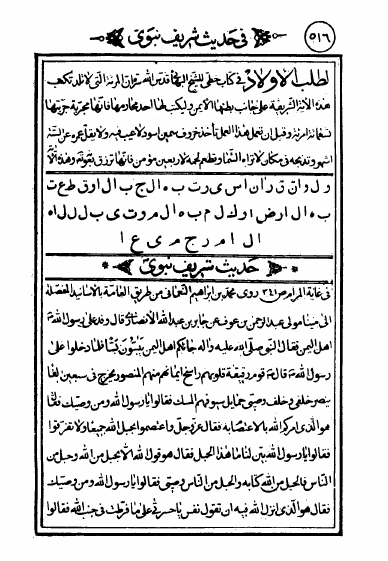 ٥١٦ في حديث شريف نبوي
لطلب الأولاد في كتاب خطى للشيخ البهائي قدس الله سره ان المرئة التي لا تلد تكتب
هذه الآية الشريفة على جانب بطنها الأيمن ويكتب لها أحد بحملها فانها مجربة جربتها
اشهر وتذبحه في مكان لا تراه السماء وتطعم لحمه لاربعين مؤمن فانها ترزق بعونه وهذه الآية
و ل و ا ن ق ر ا ن ا س ي ر ت ب ه ا ل ج ب ا ل ا و ق ط ع ت
ب ه ا ل ا ر ض ا و ك ل م ب ه ا ل م و ت ى ب ل ل ل ه
ا ل ا م ر ج م ي ع ا
حديث شريف نبوي
في غاية المرام ص ٢٤١ روى محمد بن ابراهيم النعماني من طريق العامة بالاسانيد المفصلة
الى مينا مولى عبد الرحمن بن عوف عن جابر بن عبد الله الانصاري قال وفد على رسول الله ص
اهل اليمن فقال النبي صلى الله عليه واله جائكم اهل اليمن يبسون بسا فلما دخلوا على
رسول الله ص قال ص قوم رقيقة قلوبهم راسخ ايمانهم منهم المنصور يخرج في سبعين الفا
ينصر خلفي وخلف وصيي حمايل سيوفهم المسك فقالوا يا رسول الله ومن وصيك فقال
هو الذي امركم الله بالاعتصام به فقال عز وجل واعتصموا بحبل الله جميعا ولا تفرقوا
فقالوا يا رسول الله بين لنا ما هذا الحبل فقال هو قول الله الا بحبل من الله وحبل من
الناس فالحبل من الله كتابه والحبل من الناس وصيي فقالوا يا رسول الله ومن وصيك
فقال هو الذي انزل الله فيه ان تقول نفس يا حسرتى على ما فرطت في جنب الله فقالوا